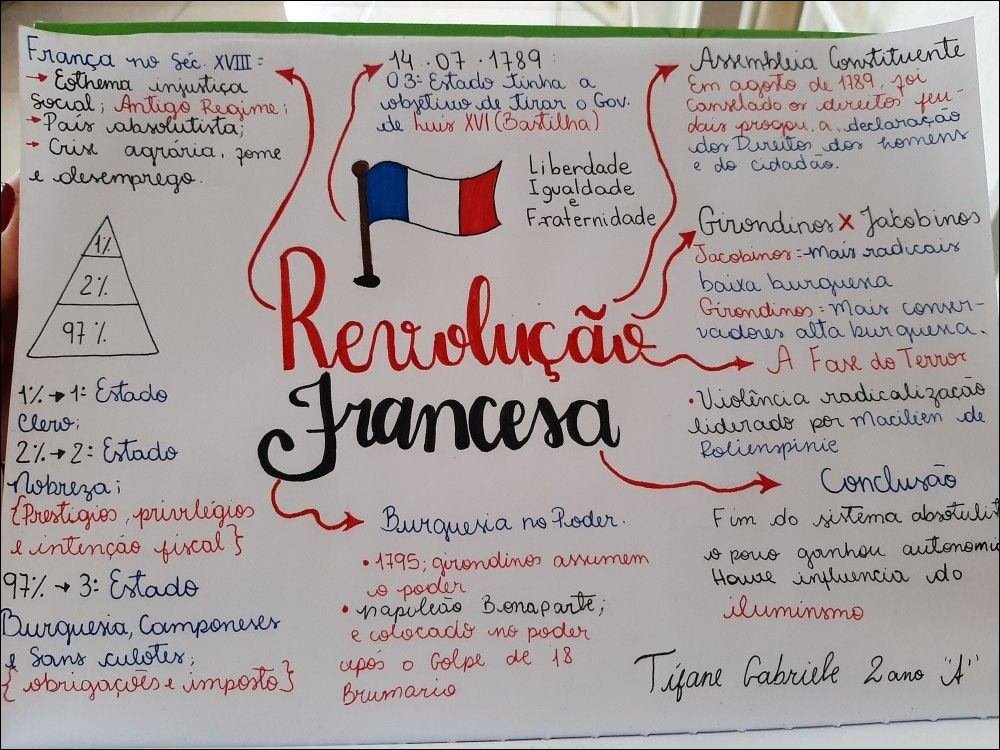 França no Séc. XVIII =
→ Esthema injustiça
Social; Antigo Regime;
→ País absolutista;
→ Crise agrária, fome
e desemprego.
1%
2%
97%
1% → 1: Estado
Clero;
2% → 2: Estado
Nobreza;
{Prestígios, privilégios
e intenção fiscal}
97% → 3: Estado
Burguesia, Camponeses
e Sans culotes;
{obrigações e imposto}
14.07.1789:
O 3: Estado tinha a
objetivo de tirar o Gov.
de Luis XVI (Bastilha)
Liberdade
Igualdade
e
Fraternidade
Revolução
Francesa
Burguesia no Poder.
• 1795; girondinos assumem
o poder
• napoleão Bonaparte;
e colocado no poder
após o Golpe de 18
Brumario
Assembleia Constituente
Em agosto de 1789, foi
canselado os direitos feu-
dais progou, a declaração
dos Direitos dos homens
e do cidadão.
Girondinos X Jacobinos
Jacobinos = Mais radicais
baixa burguesia
Girondinos = Mais conser-
vadores alta burguesia.
A Fase do Terror
• Violência radicalização
liderado por Macilien de
Rolienspinie
Conclusão
Fim do sistema absolutist
o povo ganhou autonomia
Houve influencia do
iluminsmo
Tifane Gabriele 2 ano "A"